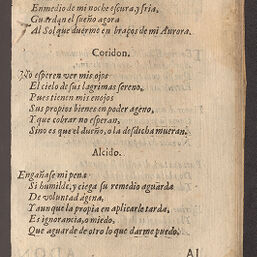 Enmedio de mi noche escura, y fria,
Guardan el sueño agora
Al Sol que duerme en braços de mi Aurora.
Coridon.
No esperen ver mis ojos
El cielo de sus lagrimas sereno,
Pues tienen mis enojos
Sus propios bienes en poder ageno,
Y que cobrar no esperan,
Sino es que el dueño, o la desdicha mueran.
Alcido.
Engañase mi pena
Si humilde, y ciega su remedio aguarda
De voluntad agena,
Y aunque la propia en aplicarle tarda,
Es ignorancia, o miedo,
Que aguarde de otro lo que darme puedo.
Al